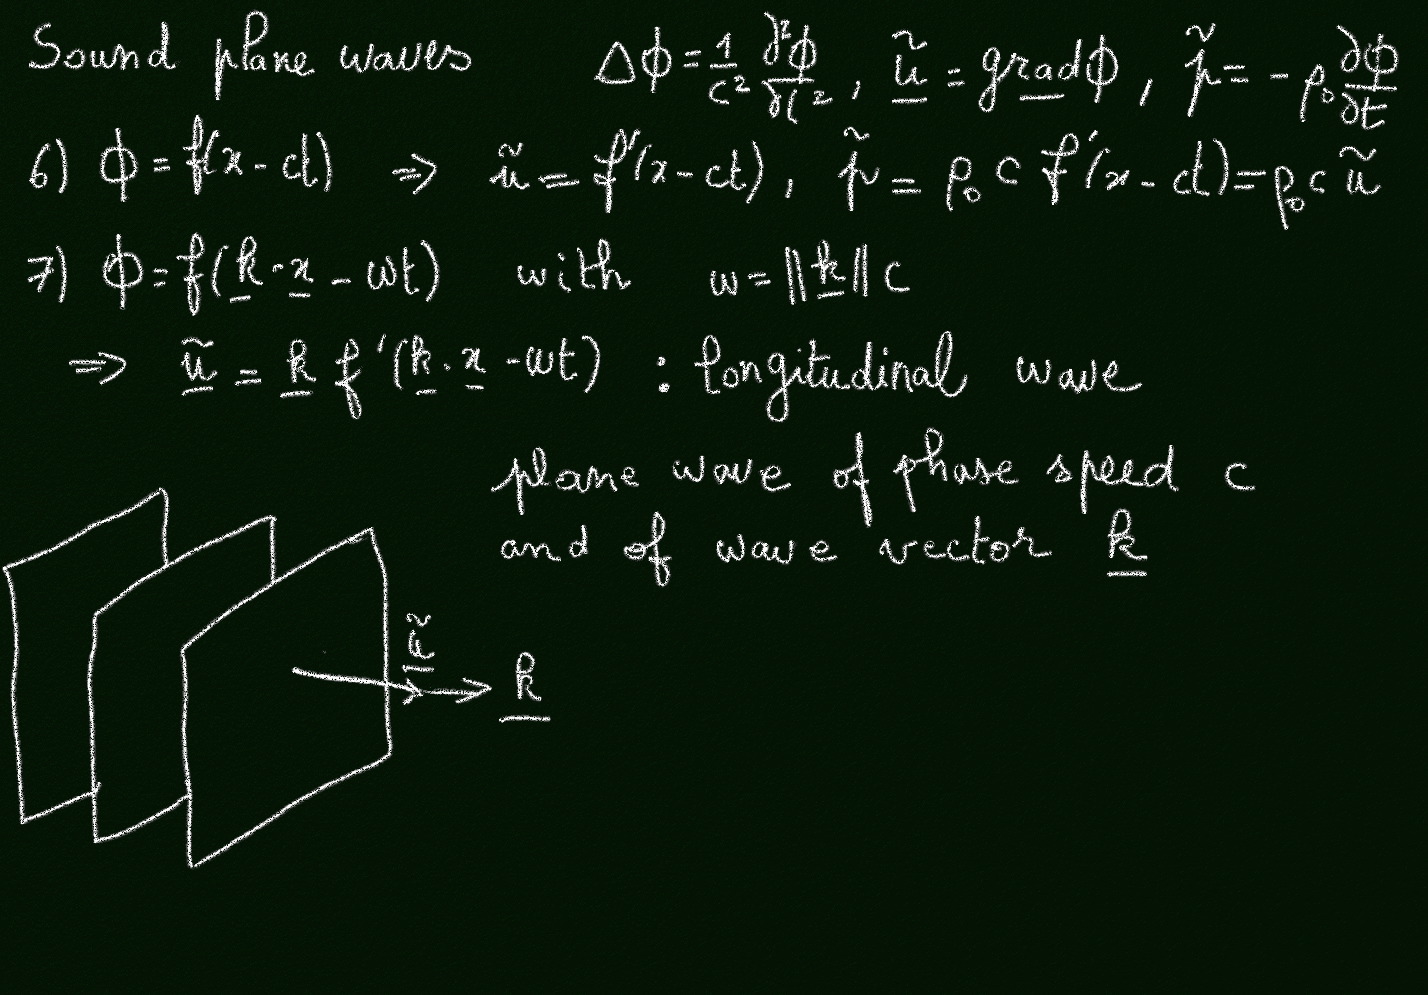 Sound plane waves Δϕ = 1/c² ∂²ϕ/∂t², ũ = grad ϕ, p̃ = - ρ₀ ∂ϕ/∂t
6) ϕ = f(x - ct) ⇒ ũ = f'(x - ct), p̃ = ρ₀ c f'(x - ct) = ρ₀ c ũ
7) ϕ = f(k · x - ωt) with ω = ||k|| c
⇒ ũ = k f'(k · x - ωt) : longitudinal wave
plane wave of phase speed c
and of wave vector k
ũ
k